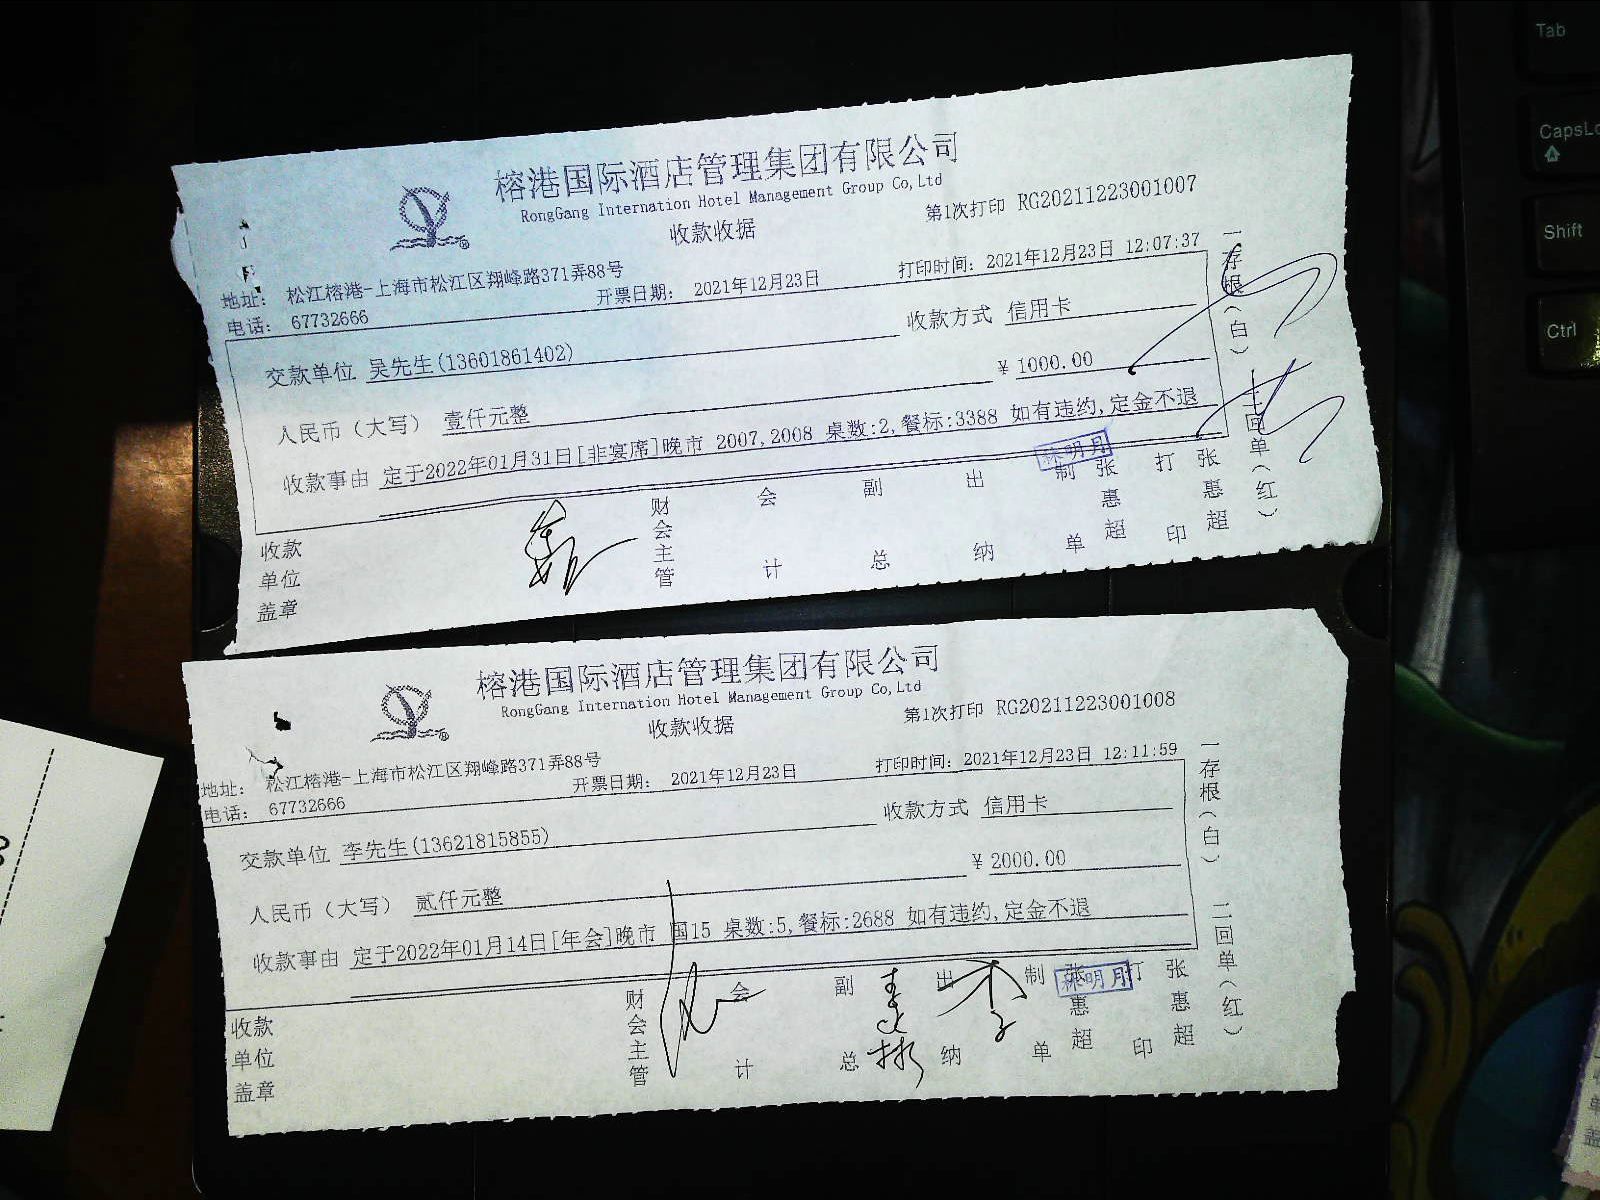 榕港国际酒店管理集团有限公司
RongGang Internation Hotel Management Group Co,Ltd
收款收据
第1次打印 RG20211223001007
地址： 松江榕港-上海市松江区翔峰路371弄88号
电话： 67732666
开票日期： 2021年12月23日
打印时间：2021年12月23日 12:07:37
交款单位 吴先生(13601861402)
收款方式 信用卡
人民币（大写） 壹仟元整
￥ 1000.00
收款事由 定于2022年01月31日[非宴席]晚市 2007,2008 桌数:2,餐标:3388 如有违约,定金不退
收款单位盖章
财会主管
会计
副总
出纳
制单
张惠超
打印
张惠超
林明月
一存根（白）
二回单（红）
榕港国际酒店管理集团有限公司
RongGang Internation Hotel Management Group Co,Ltd
收款收据
第1次打印 RG20211223001008
地址： 松江榕港-上海市松江区翔峰路371弄88号
电话： 67732666
开票日期： 2021年12月23日
打印时间：2021年12月23日 12:11:59
交款单位 李先生(13621815855)
收款方式 信用卡
人民币（大写） 贰仟元整
￥ 2000.00
收款事由 定于2022年01月14日[年会]晚市 国15 桌数:5,餐标:2688 如有违约,定金不退
收款单位盖章
财会主管
会计
副总
出纳
制单
张惠超
打印
张惠超
林明月
一存根（白）
二回单（红）
Tab
CapsLo
Shift
Ctrl